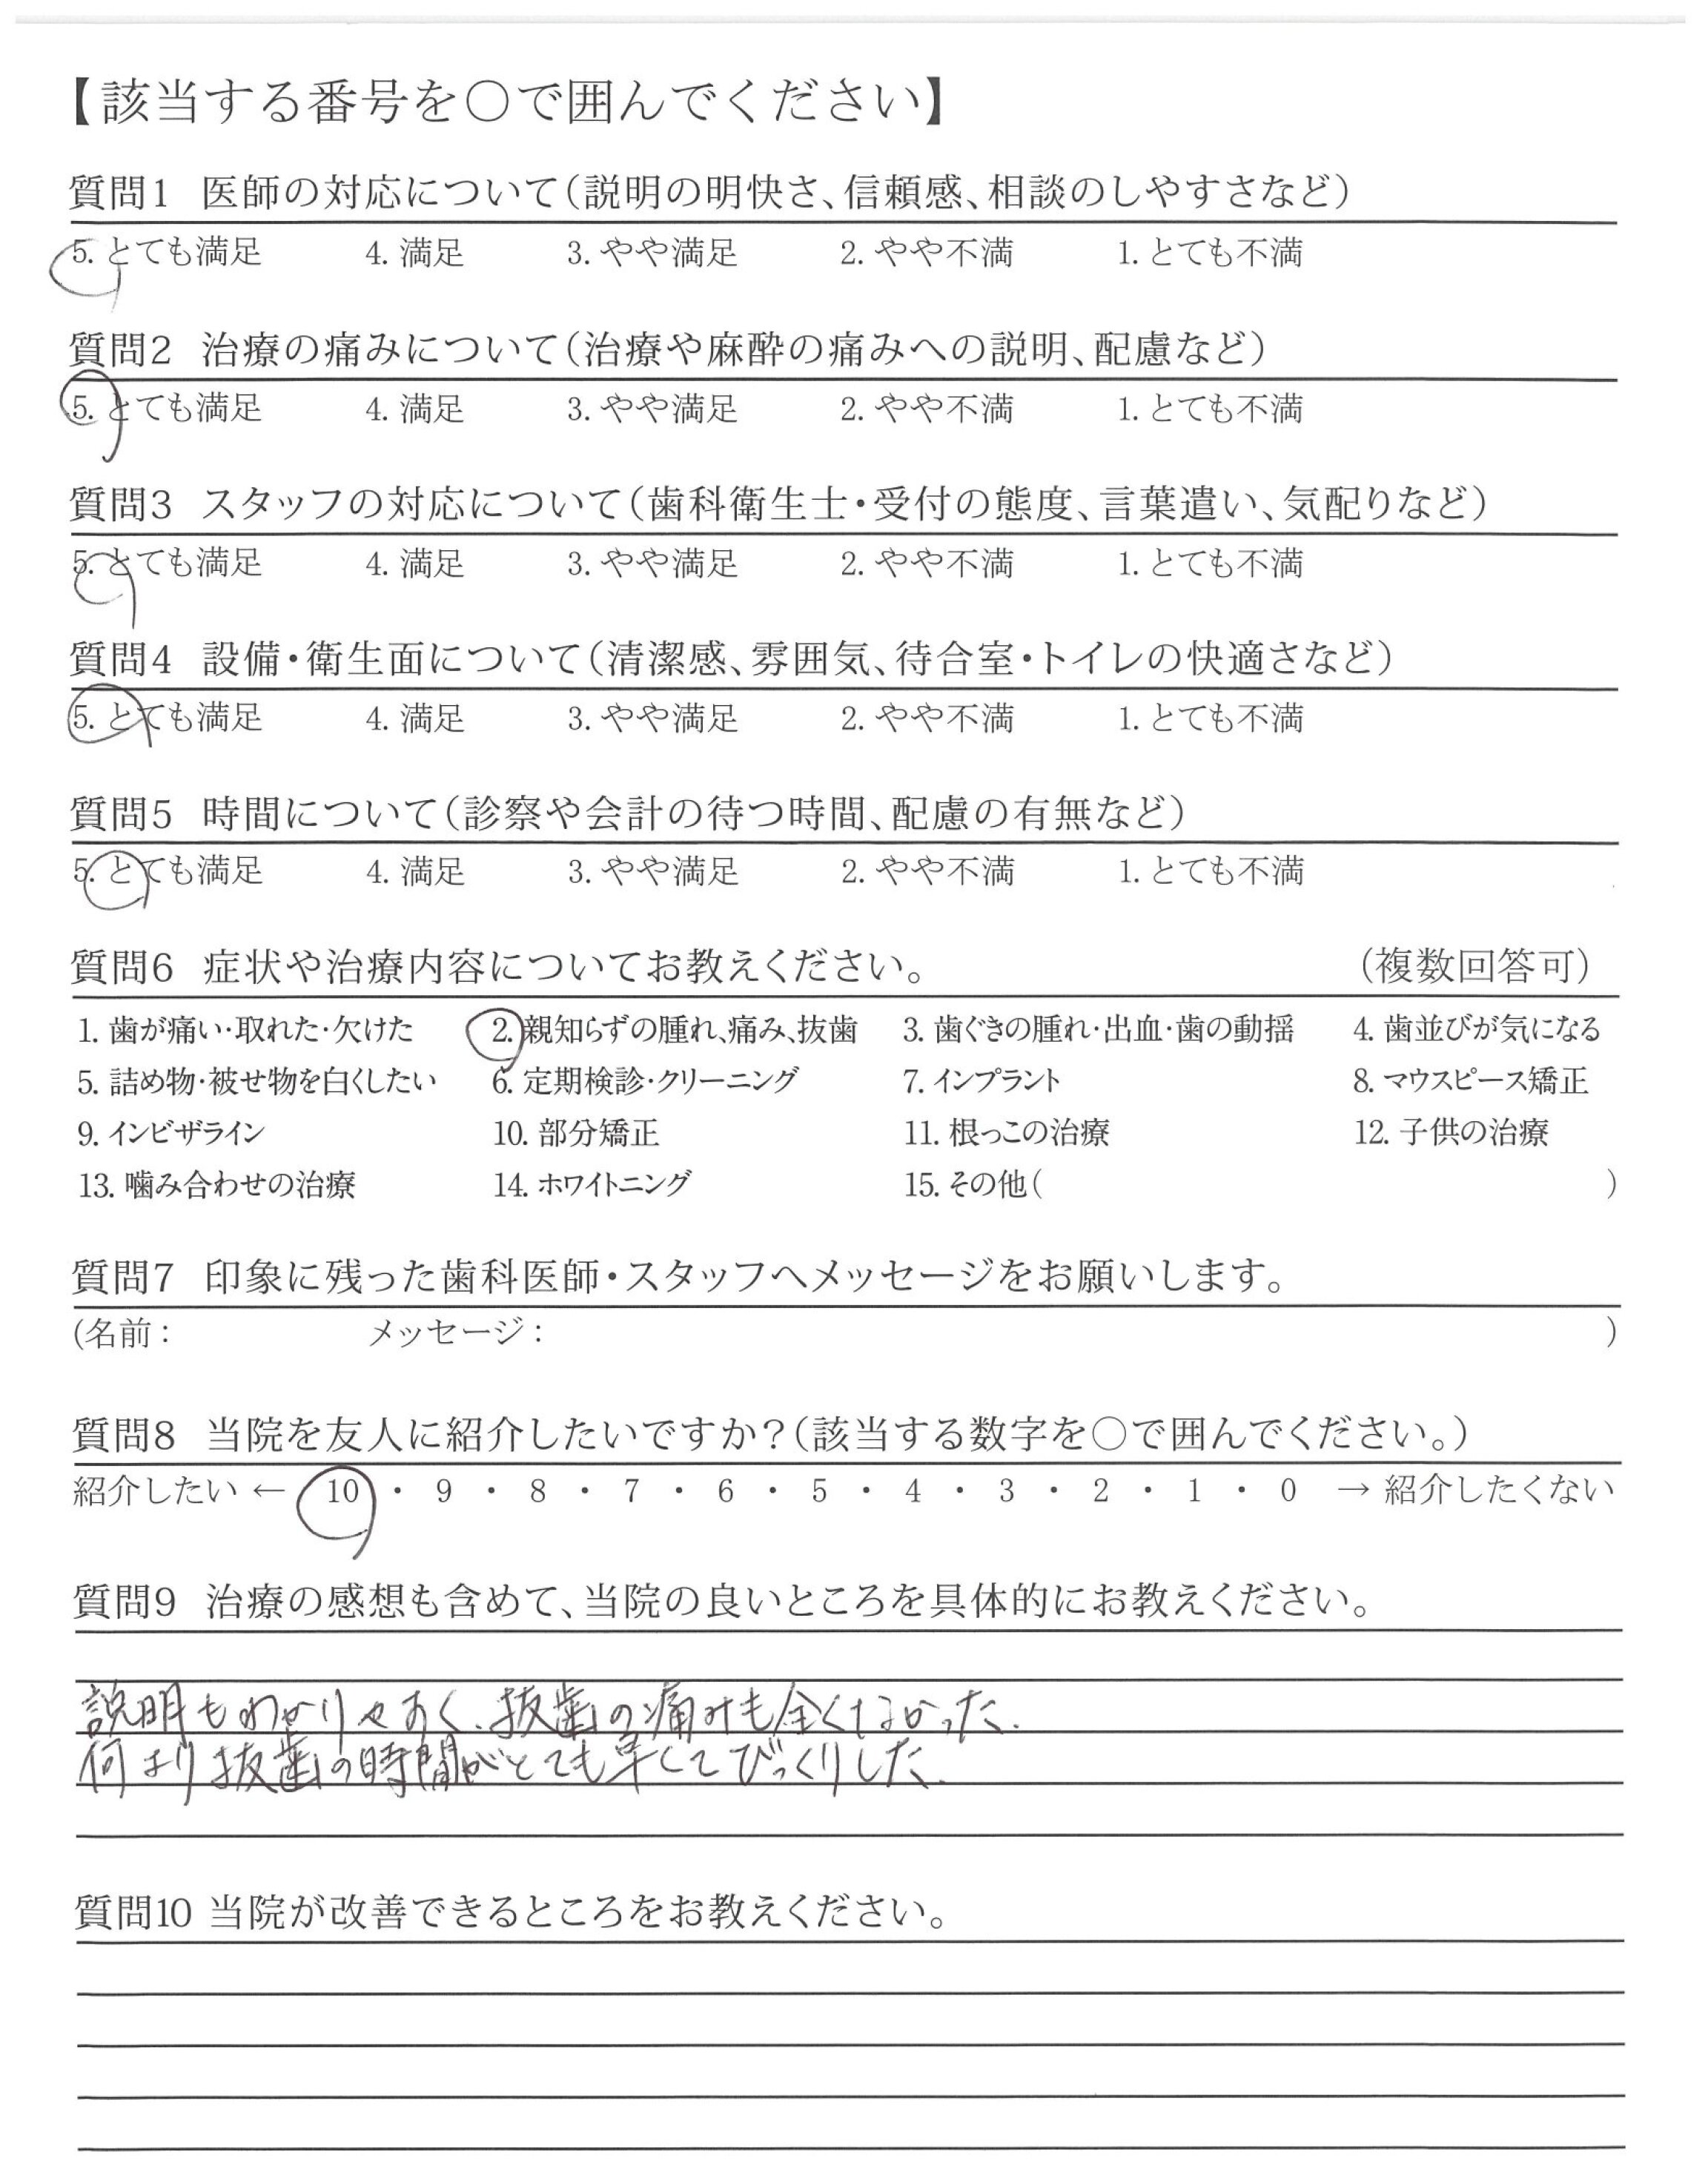 【該当する番号を〇で囲んでください】
質問1 医師の対応について(説明の明快さ、信頼感、相談のしやすさなど)
5. とても満足 4. 満足 3. やや満足 2. やや不満 1. とても不満
質問2 治療の痛みについて(治療や麻酔の痛みへの説明、配慮など)
5. とても満足 4. 満足 3. やや満足 2. やや不満 1. とても不満
質問3 スタッフの対応について(歯科衛生士・受付の態度、言葉遣い、気配りなど)
5. とても満足 4. 満足 3. やや満足 2. やや不満 1. とても不満
質問4 設備・衛生面について(清潔感、雰囲気、待合室・トイレの快適さなど)
5. とても満足 4. 満足 3. やや満足 2. やや不満 1. とても不満
質問5 時間について(診察や会計の待つ時間、配慮の有無など)
5. とても満足 4. 満足 3. やや満足 2. やや不満 1. とても不満
質問6 症状や治療内容についてお教えください。 (複数回答可)
1. 歯が痛い・取れた・欠けた 2. 親知らずの腫れ、痛み、抜歯 3. 歯ぐきの腫れ・出血・歯の動揺 4. 歯並びが気になる
5. 詰め物・被せ物を白くしたい 6. 定期検診・クリーニング 7. インプラント 8. マウスピース矯正
9. インビザライン 10. 部分矯正 11. 根っこの治療 12. 子供の治療
13. 噛み合わせの治療 14. ホワイトニング 15. その他( )
質問7 印象に残った歯科医師・スタッフへメッセージをお願いします。
(名前: メッセージ: )
質問8 当院を友人に紹介したいですか?(該当する数字を〇で囲んでください。)
紹介したい ← 10 ・ 9 ・ 8 ・ 7 ・ 6 ・ 5 ・ 4 ・ 3 ・ 2 ・ 1 ・ 0 → 紹介したくない
質問9 治療の感想も含めて、当院の良いところを具体的にお教えください。
説明もわかりやすく、抜歯の痛みも全くなかった.
何より抜歯の時間がとても早くてびっくりした.
質問10 当院が改善できるところをお教えください。